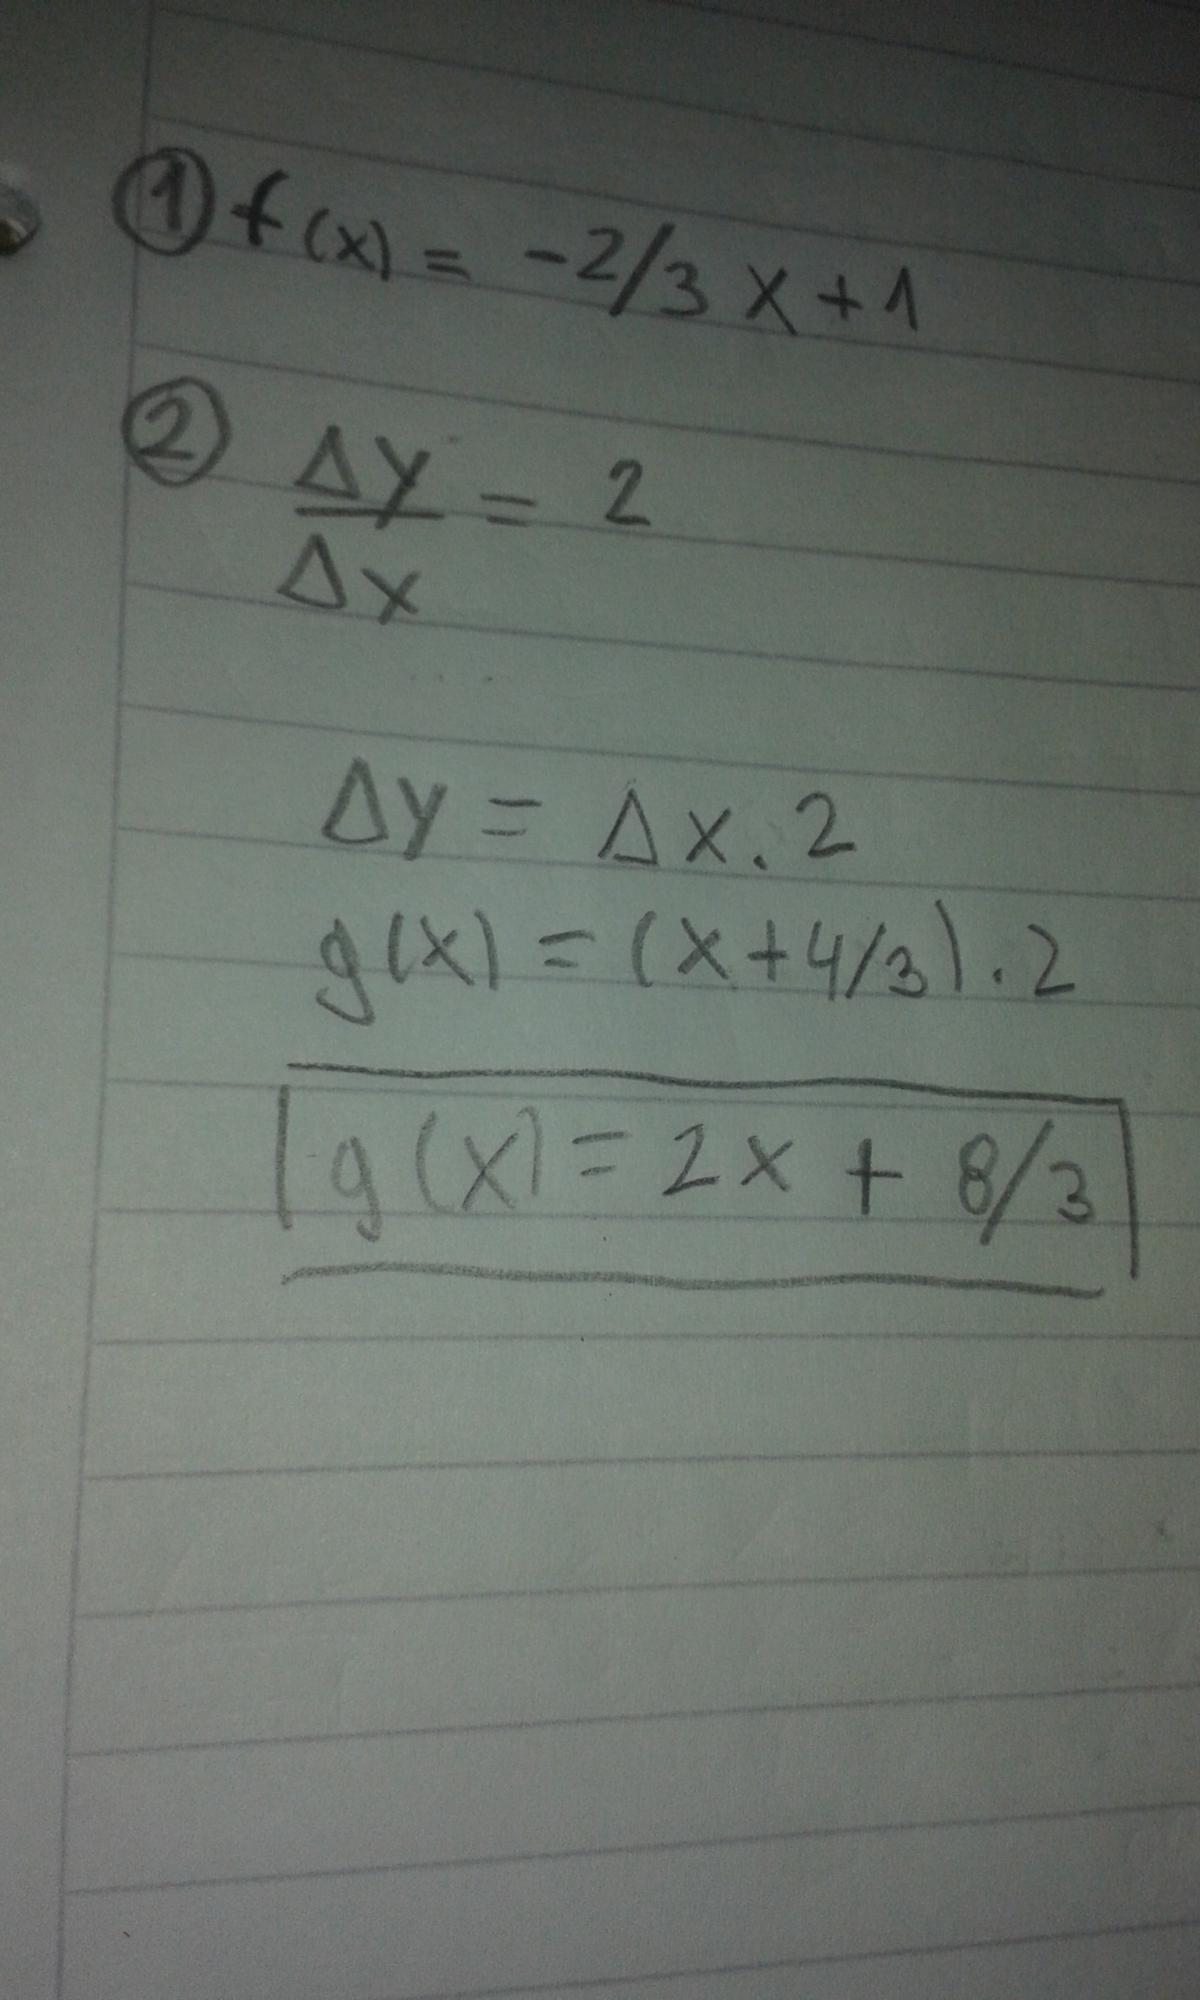 ① f(x) = -2/3 x + 1
② Δy/Δx = 2
Δy = Δx . 2
g(x) = (x + 4/3) . 2
g(x) = 2x + 8/3